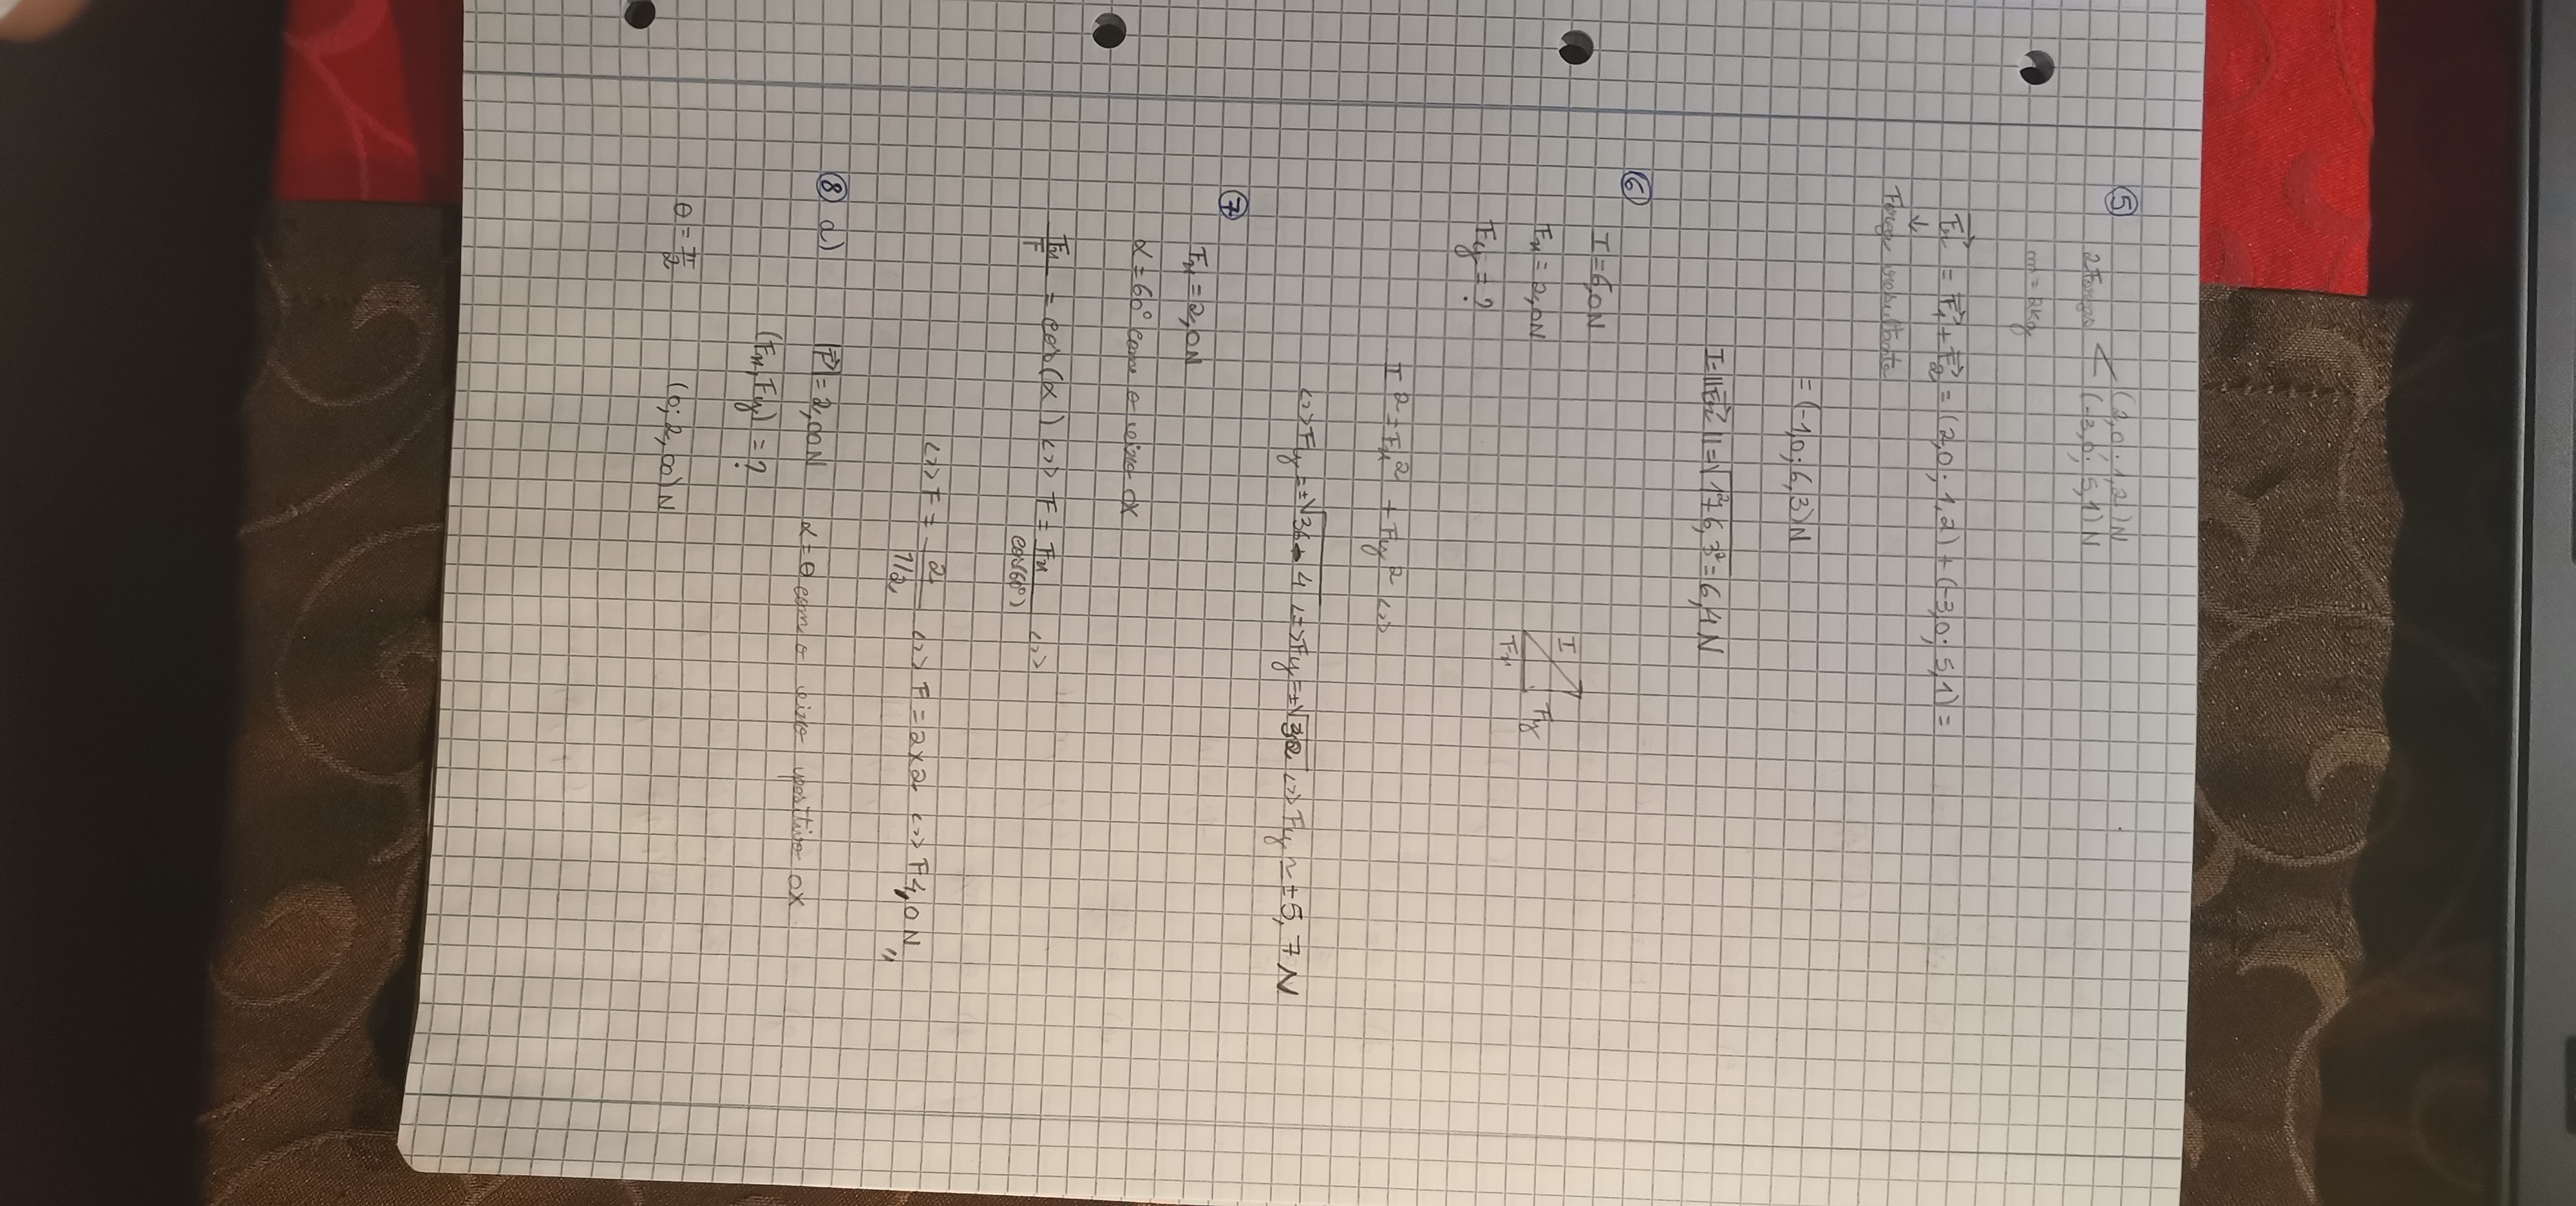 ⑤
2 Forças < (2,0; 1,2) N
(-3,0; 5,1) N
m = 2kg
= F₁ + F₂ = (2,0; 1,2) + (-3,0; 5,1) =
↓
Força resultante
= (-1,0; 6,3) N
= √1²+6,3² = 6,4 N
⑥
I = 6,0N
Fx = 2,0N
Fy = ?
I
Fx
Fy
I² = Fx² + Fy² <=>
<=> Fy = ±√36-4 <=> Fy = ±√32 <=> Fy ≈ ±5,7 N
⑦
Fx = 2,0N
α = 60° com o eixo OX
Fx/F = cos(α) <=> F = Fx/cos(60°) <=>
<=> F = 2/1/2 <=> F = 2×2 <=> F 4,0 N //
⑧ a) |F| = 2,00N α = θ com o eixo positivo OX
(Fx, Fy) = ?
θ = π/2 (0; 2,00) N